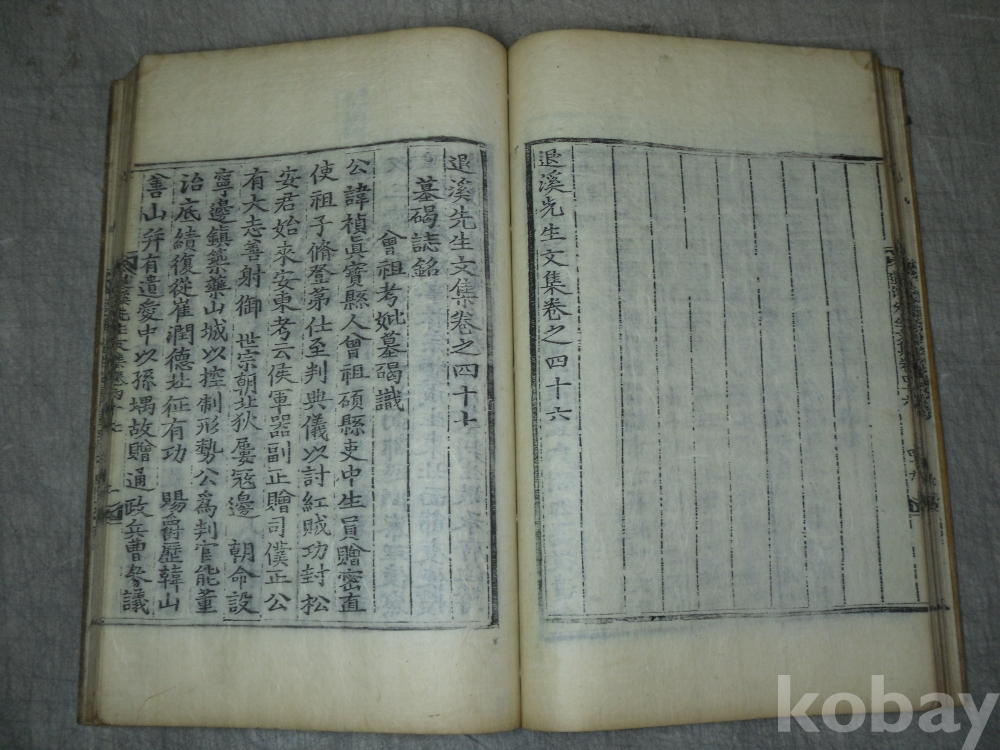 退溪先生文集卷之四十六
退溪先生文集卷之四十七
墓碣誌銘
曾祖考妣墓碣識
公諱楨眞寶縣人曾祖碩縣吏中生員贈密直
使祖子脩登第仕至判典儀以討紅賊功封松
安君始來安東考云侯軍器副正贈司僕正公
有大志善射御 世宗朝北狄屢寇邊 朝命設
寧邊鎭築藥山城以控制形勢公爲判官能董
治底績復從崔潤德北征有功 賜爵歷韓山
善山幷有遺愛中以孫堣故贈通政兵曹參議
kobay